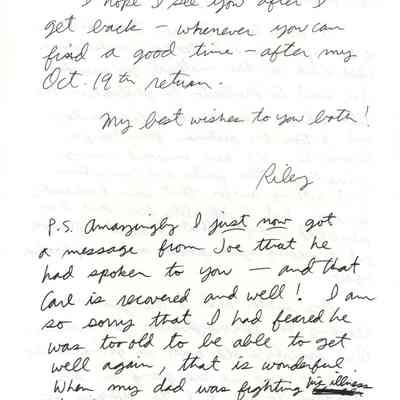 I hope I see you after I
get back – whenever you can
find a good time – after my
Oct. 19th return.
My best wishes to you both!
Riley
P.S. Amazingly I just now got
a message from Joe that he
had spoken to you – and that
Carl is recovered and well! I am
so sorry that I had feared he
was too old to be able to get
well again, that is wonderful.
When my dad was fighting his illness